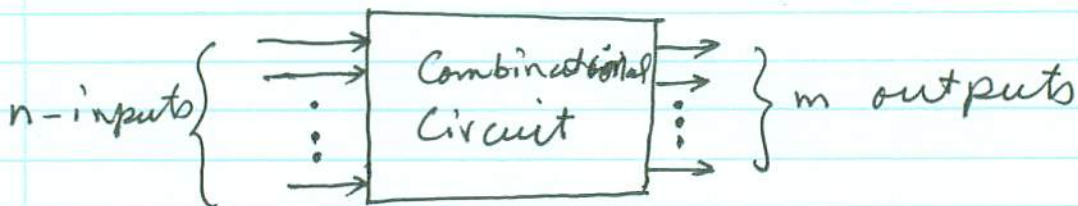 n-inputs
Combinational
Circuit
m outputs